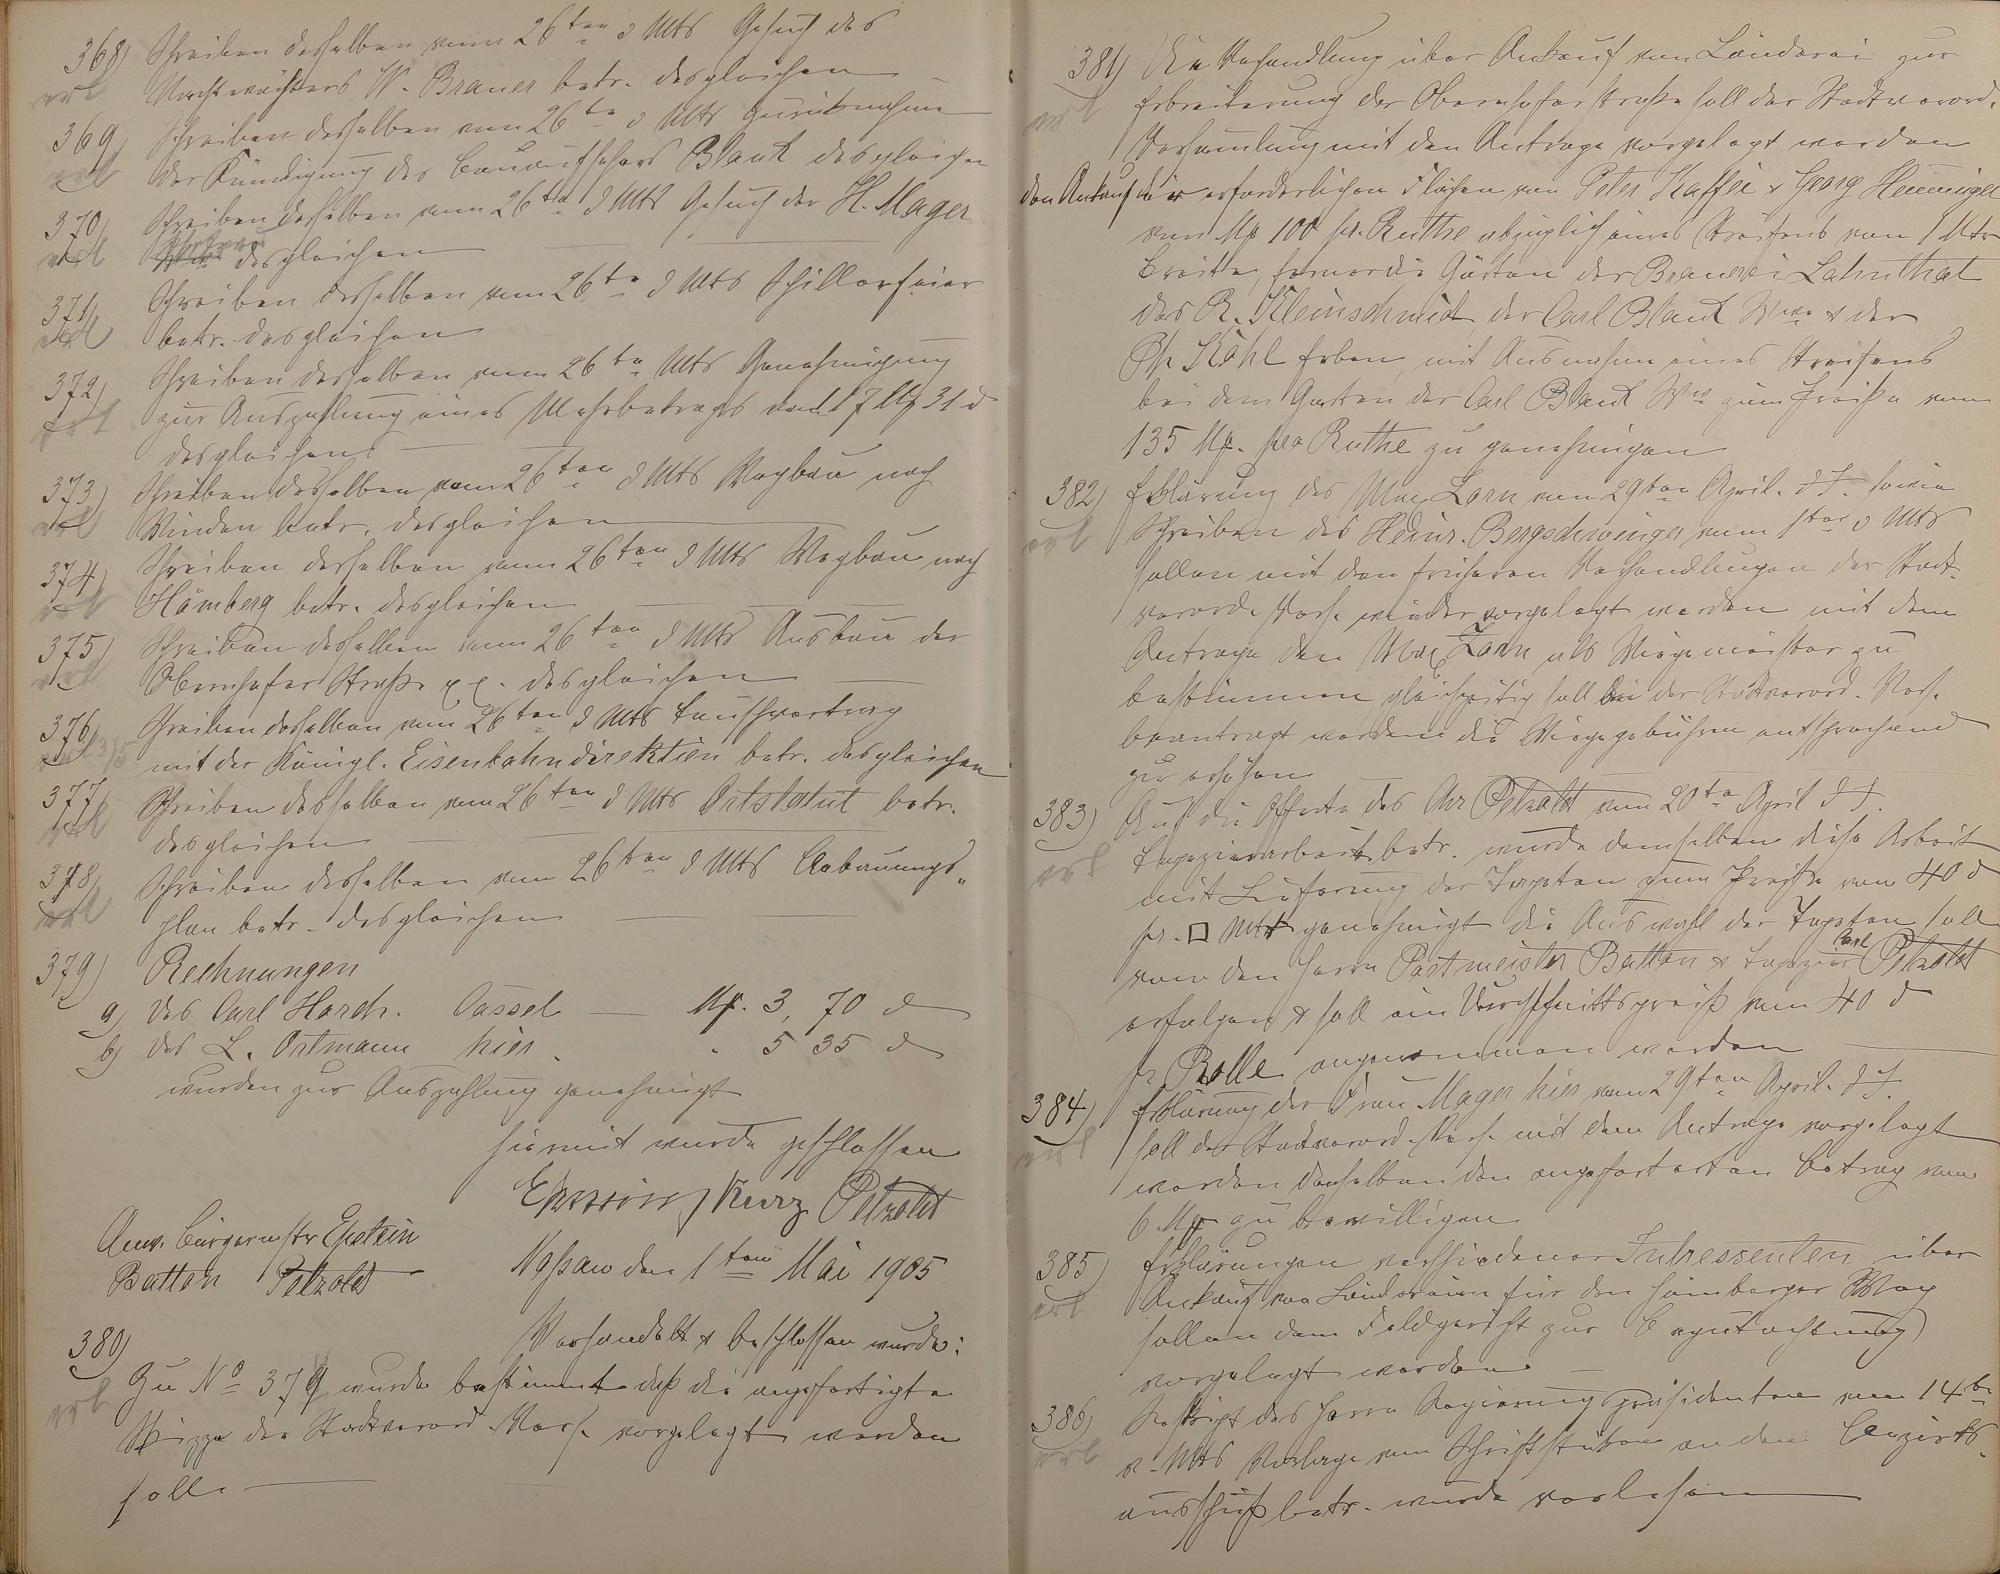 368) Schreiben desselben vom 26ten d Mts Gesuch des
erl. Nachtwächters W. Brauer betr. desgleichen
369) Schreiben desselben vom 26ten d Mts Zurücknahme
erl der Kündigung des Bauaufsehers Blank desgleichen
370) Schreiben desselben vom 26ten d Mts Gesuch der H. Mager
erl desgleichen
371) Schreiben desselben vom 26ten d Mts Schillerfeier
erl betr. desgleichen
372) Schreiben desselben vom 26ten Mts Genehmigung
erl zur Auszahlung eines Mehrbetrages von 17 M 31 d
desgleichen
373) Schreiben desselben vom 26ten d Mts Wegbau nach
erl Winden betr. desgleichen
374) Schreiben desselben vom 26ten d Mts Wegbau nach
erl Hömberg betr. desgleichen
375) Schreiben desselben vom 26ten d Mts Ausbau der
erl Obernhofer Straße desgleichen
376) Schreiben desselben vom 26ten d Mts Tauschvertrag
mit der Königl. Eisenbahndirektion betr. desgleichen
377) Schreiben desselben vom 26ten d Mts Ortsstatut betr.
erl desgleichen
378) Schreiben desselben vom 26ten d Mts Bebauungs„
erl plan betr. desgleichen
379) Rechnungen
a) des Carl Hardt. Cassel M. 3, 70 d
b) des L. Ortmann hier. " 5 35 d
wurden zur Auszahlung genehmigt
hiermit wurde geschlossen
Epstein Kurz Petzoldt
Anw. Bürgermstr Epstein
Batton Petzoldt
Naßau den 1ten Mai 1905
Verhandelt & beschlossen wurde:
380) Zu No 379 wurde bestimmt daß die angefertigte
erl Skizze der Stadtverord. Vers. vorgelegt werden
solle
381) Die Verhandlung über Ankauf von Länderei zur
erl Erbreiterung der Obernhoferstraße soll der Stadtverord.
Versamlung mit dem Antrage vorgelegt werden
den Ankauf der erforderlichen Flächen von Peter Kaffei & Georg Heuninger
von M 100 pr. Ruthe abzüglich eines Streifens von 1 Mtr
Breite, ferner die Gärten der Brauerei Lahnthal
des R. Kleinschmidt der Carl Blank Wwe & der
Ph. Kohl Erben, mit Ausnahme eines Streifens
bei dem Garten der Carl Blank Wwe zum Preiße von
135 M. pro Ruthe zu genehmigen
382) Erklärung des Max Lorn vom 29ten April. d J. sowie
erl Schreiben des Heinr. Bergschwinger vom 1ten d Mts
sollen mit den früheren Verhandlungen der Stadt-
verord. Vers. wieder vorgelegt werden mit dem
Antrage den Max Lorn als Wiegemeister zu
bestimmen, gleichzeitig soll bei der Stadtverord. Vers.
beantragt werden die Wiegegebühren entsprechend
zu erhöhen
383) Auf die Offerte des Petzoldt vom 20ten April d J.
erl Tapezierarbeit betr. wurde demselben diese Arbeit
mit Lieferung der Tapeten zum Preiße von 40 d
pr. □ Mtr genehmigt die Auswahl der Tapeten soll
von den Herrn Postmeister Batton & Tapezier Carl Petzoldt
erfolgen & soll ein Durchschnittspreiß von 40 d
pr Rolle angenommen werden
384) Erklärung der Frau Mager hier vom 29ten April. d J.
erl soll der Stadtverord. Vers. mit dem Antrage vorgelegt
werden derselben den angeforderten Betrag von
6 M zu bewilligen
385) Erklärungen verschiedener Intressenten über
erl Ankauf von Ländereien für den Hömberger Weg
sollen dem Feldgericht zur Begutachtung
vorgelegt werden
386) Reskript des Herrn Regierungspräsidenten vom 14ten
erl v. Mts Vorlage von Schriftstücken an den Bezirks-
ausschuß betr. wurde verlesen